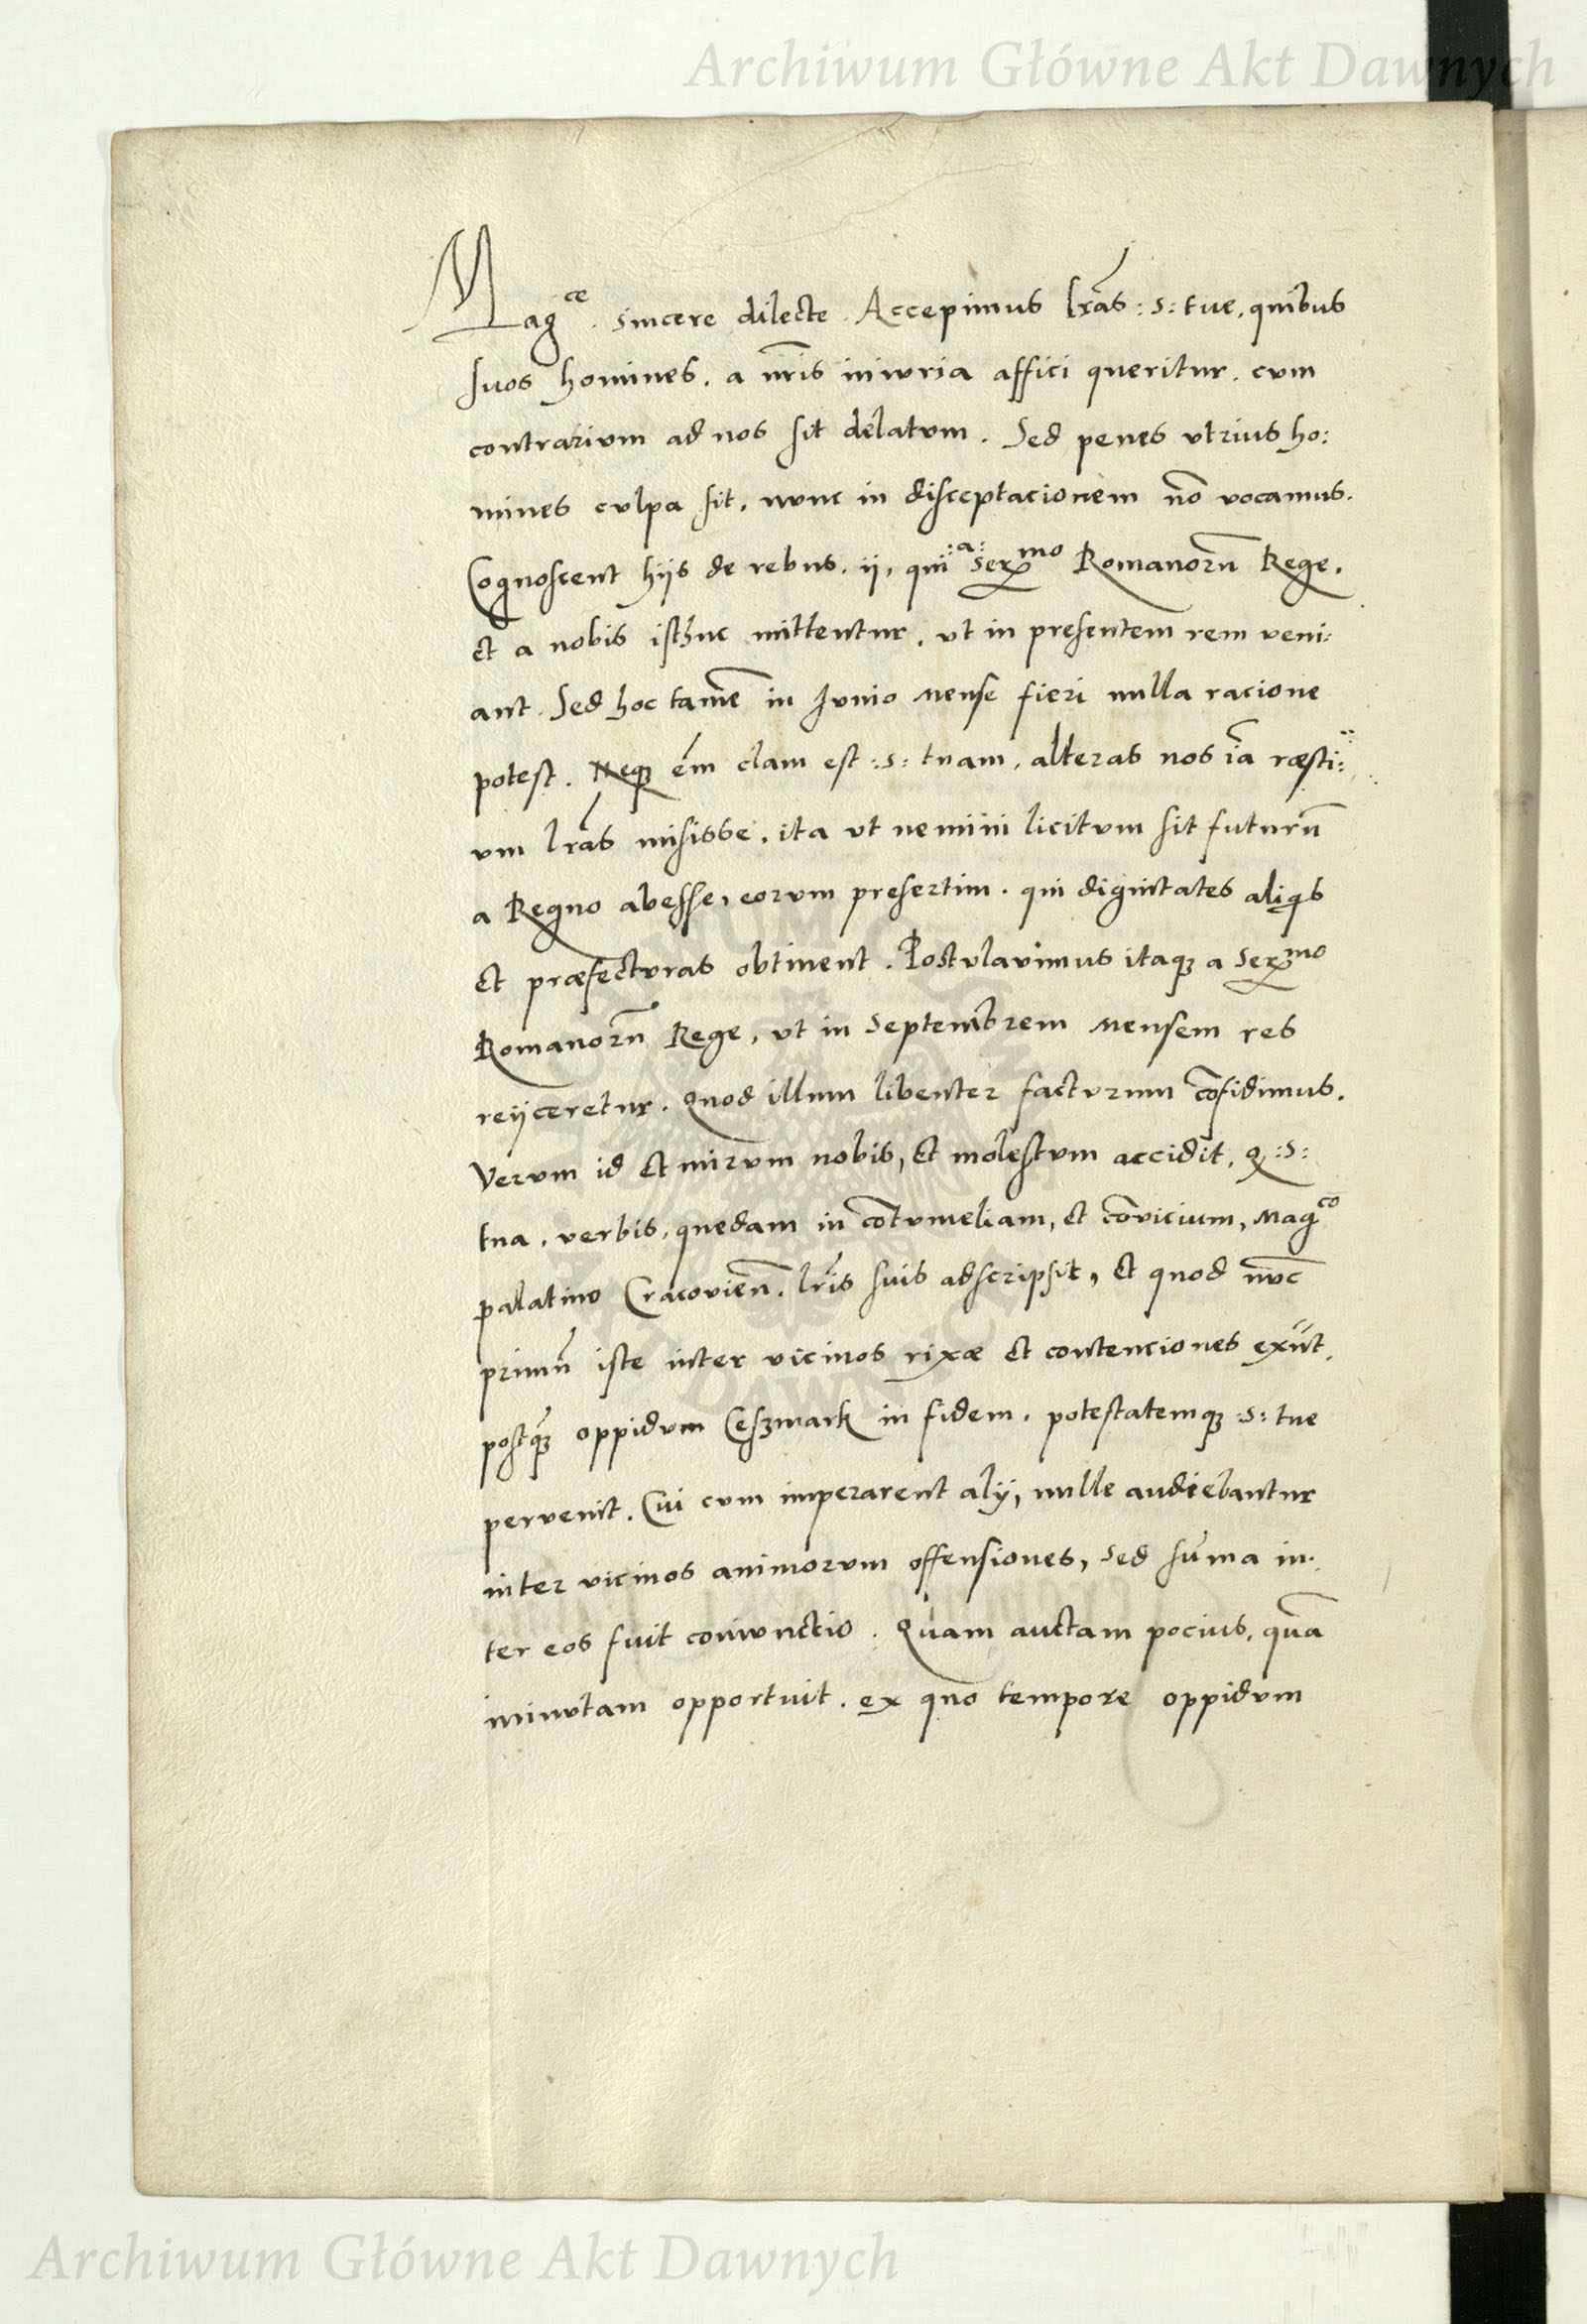 Archiwum Główne Akt Dawnych
Magce. Sincere dilecte. Accepimus lrãs :S: tue, quibus
suos homines, a nr̃is iniuria affici queritur, cvm
contrarivm ad nos sit delatvm. Sed penes vtrius ho:
mines cvlpa sit, nvnc in disceptacionem nõ vocamus.
Cognoscent hijs de rebus, ij, qui :a: Sermo Romanorũ Rege,
et a nobis isthuc mittentur, vt in presentem rem veni:
ant. Sed hoc tamẽ in Ivnio mense fieri nulla racione
potest. Neqȝ em̃ clam est :S: tuam, alteras nos iã ræsti:
vm lrãs misisse, ita vt nemini licitvm sit futurũ
a Regno abesse, eorvm presertim, qui dignitates aliqs
et præfectvras obtinent. Postvlavimus itaqȝ a Sermo
Romanorũ Rege, vt in Septembrem mensem res
reijceretur. Quod illum libenter factvrum cõfidimus.
Vervm id et mirvm nobis, et molestvm accidit, q :S:
tua, verbis, quedam in cõtvmeliam, et cõvicium, Magco
palatino Cracovieñ. lrĩs suis adscripsit, et quod nũc
primũ iste inter vicinos rixæ et contenciones exũt,
postqȝ̃ oppidvm Cesȝmark in fidem, potestatemqȝ :S: tue
pervenit. Cui cvm imperarent alij, nulle audiebantur
inter vicinos animorvm offensiones, Sed sũma in:
ter eos fuit conivnctio. Quam auctam pocius, quã
iminvtam opportuit, ex quo tempore oppidvm
Archiwum Główne Akt Dawnych